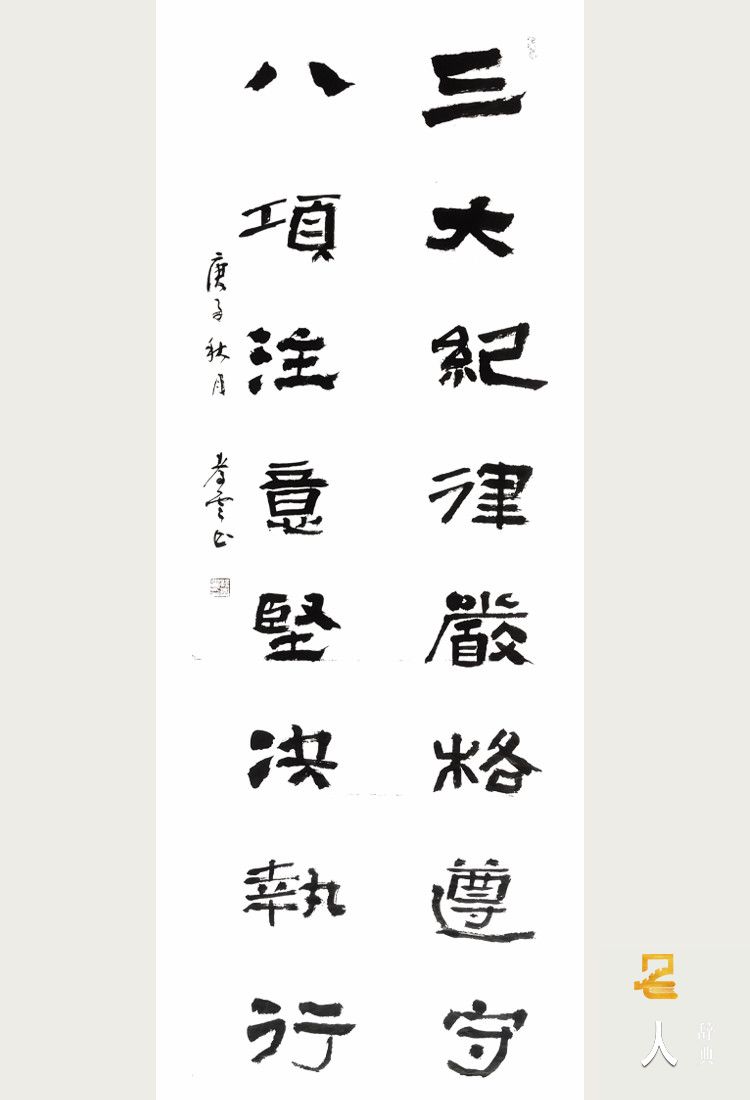 三大紀律嚴格遵守
八項注意堅决執行
庚子秋月
名人辞典